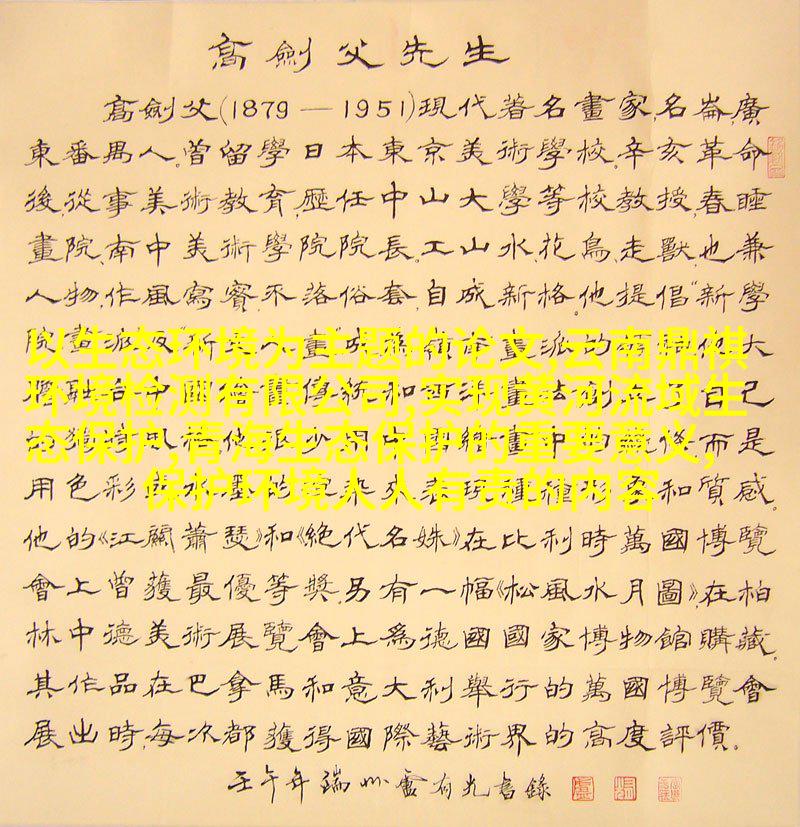 高劍父先生
高劍父(1879—1951)現代著名畫家,名崙,廣
東番禺人。曾留學日本東京美術學校。辛亥革命
後,從事美術教育,歷任中山大學等校教授,春睡
畫院、南中美術學院院長。工山水、花鳥、走獸,也兼
人物,作風寫實,不落俗套,自成新格。他提倡“新學
以生态环境为主题的论文,云南鼎祺
环境检测有限公司,实现黄河流域生
态保护,青海生态保护的重要意义,
保护环境人人有责的内容
用色彩
和質感。
他的《江關蕭瑟》和《絕代名姝》在比利時萬國博覽
會上曾獲最優等獎。另有一幅《松風水月圖》,在柏
林中德美術展覽會上爲德國國家博物館購藏。
其作品在巴拿馬和意大利舉行的萬國博覽會
展出時,每次都獲得國際藝術界的高度評價。
壬午年端州盧有光書錄